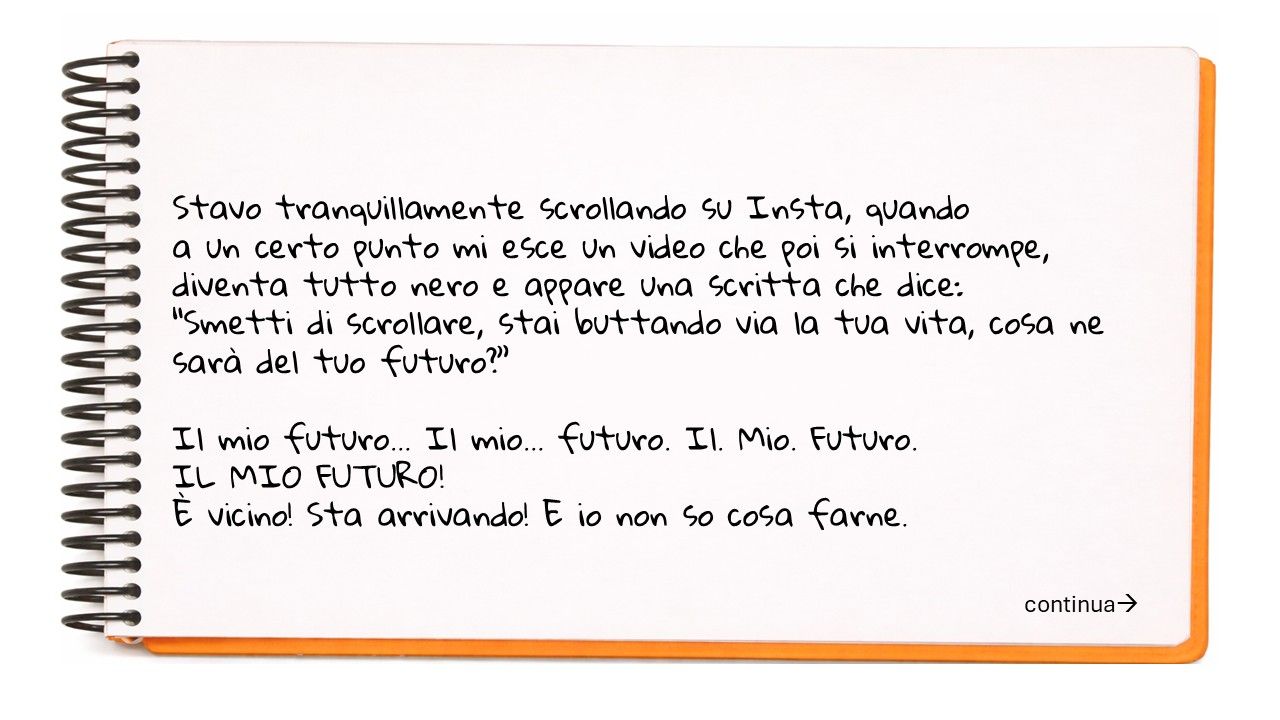 Stavo tranquillamente scrollando su Insta, quando
a un certo punto mi esce un video che poi si interrompe,
diventa tutto nero e appare una scritta che dice:
"Smetti di scrollare, stai buttando via la tua vita, cosa ne
sarà del tuo futuro?”
Il mio futuro... Il mio... futuro. Il. Mio. Futuro.
IL MIO FUTURO!
È vicino! Sta arrivando! E io non so cosa farne.
continua→